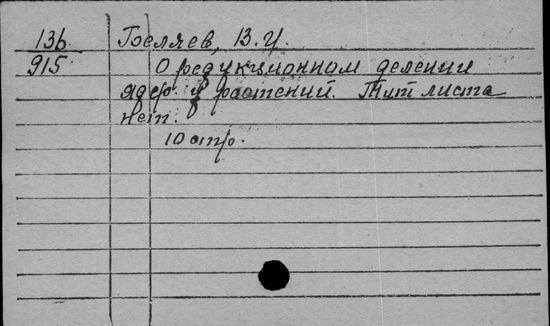 13б Беляев, В.И.
915 О редукционном делении
ядер у растений. Тит. листа
нет.
10 стр.